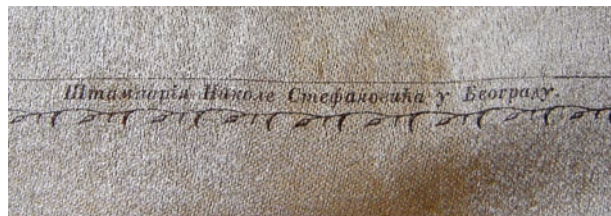 Штампарія Николе Стефановића у Београду.